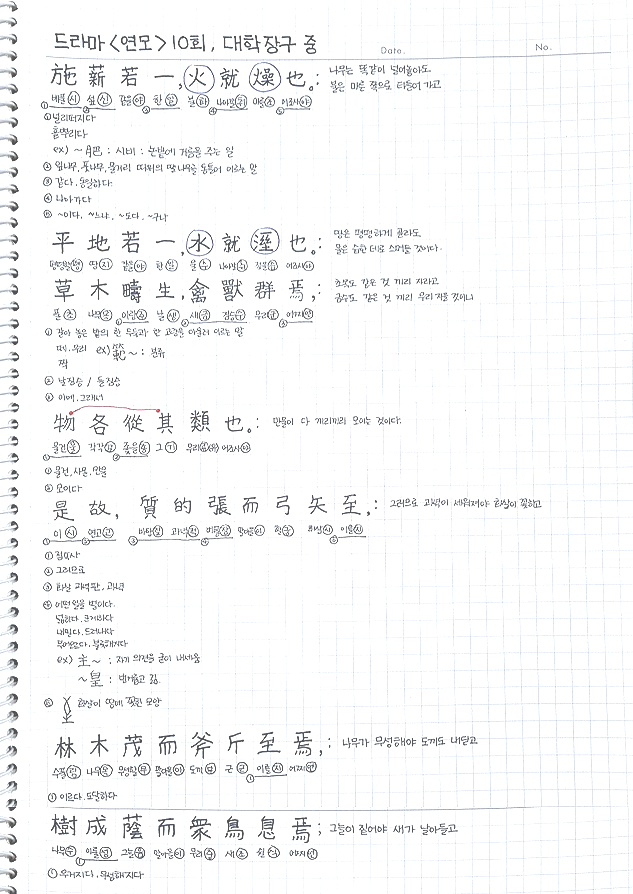 드라마 <연모> 10회, 대학장구 중
Date.
No.
施薪若一, 火就燥也。: 나무는 똑같이 널어놓아도
불은 마른 쪽으로 타들어 가고
베풀 시 섶 신 같을 야 한 일 불 화 나아갈 취 마를 조 어조사 야
① 널리퍼지다
흩뿌리다
ex) ~肥 : 시비 : 논밭에 거름을 주는 일
② 땔나무, 풋나무, 물거리 따위의 땔나무를 통틀어 이르는 말
③ 같다. 동일하다.
④ 나아가다
⑤ ~이다, ~느냐, ~도다, ~구나
平地若一, 水就溼也。: 땅은 평평하게 골라도
물은 습한 데로 스며들 것이다.
평평할 평 땅 지 같을 야 한 일 물 수 나아갈 취 젖을 습 어조사 야
草木疇生, 禽獸群焉,: 초목도 같은 것 끼리 자라고
금수도 같은 것 끼리 우리 지을 것이니
풀 초 나무 목 이랑 주 날 생 새 금 짐승 수 무리 군 어찌 언
① 갈아 놓은 밭의 한 두둑과 한 고랑을 아울러 이르는 말
떼. 무리 ex) 範~ : 범주
짝
② 날짐승 / 들짐승
③ 이에. 그래서
物各從其類也。: 만물이 다 끼리끼리 모이는 것이다.
물건 물 각각 각 좇을 종 그 기 무리 류(유) 어조사 야
① 물건, 사물, 만물
② 모이다
是故, 質的張而弓矢至,: 그러므로 과녁이 세워져야 화살이 꽂히고
이 시 연고 고 바탕 질 과녁 적 베풀 장 말이을 이 활 궁 화살 시 이를 지
① 접속사
② 그러므로
③ 화살 과녁판. 과녁
④ 어떤일을 벌이다.
넓히다. 크게하다
내밀다. 드러내다
부어오르다. 불룩해지다
ex) 主~ : 자기 의견을 굳이 내세움
~皇 : 번거롭고 김.
⑤ 화살이 땅에 꽂힌 모양
林木茂而斧斤至焉,: 나무가 무성해야 도끼도 내닫고
수풀 림 나무 목 무성할 무 말이을 이 도끼 부 근 근 이를 지 어찌 언
① 이르다. 도달하다
樹成蔭而衆鳥息焉; 그늘이 짙어야 새가 날아들고
나무 수 이룰 성 그늘 음 말이을 이 무리 중 새 조 쉴 식 어찌 언
① 우거지다, 무성해지다